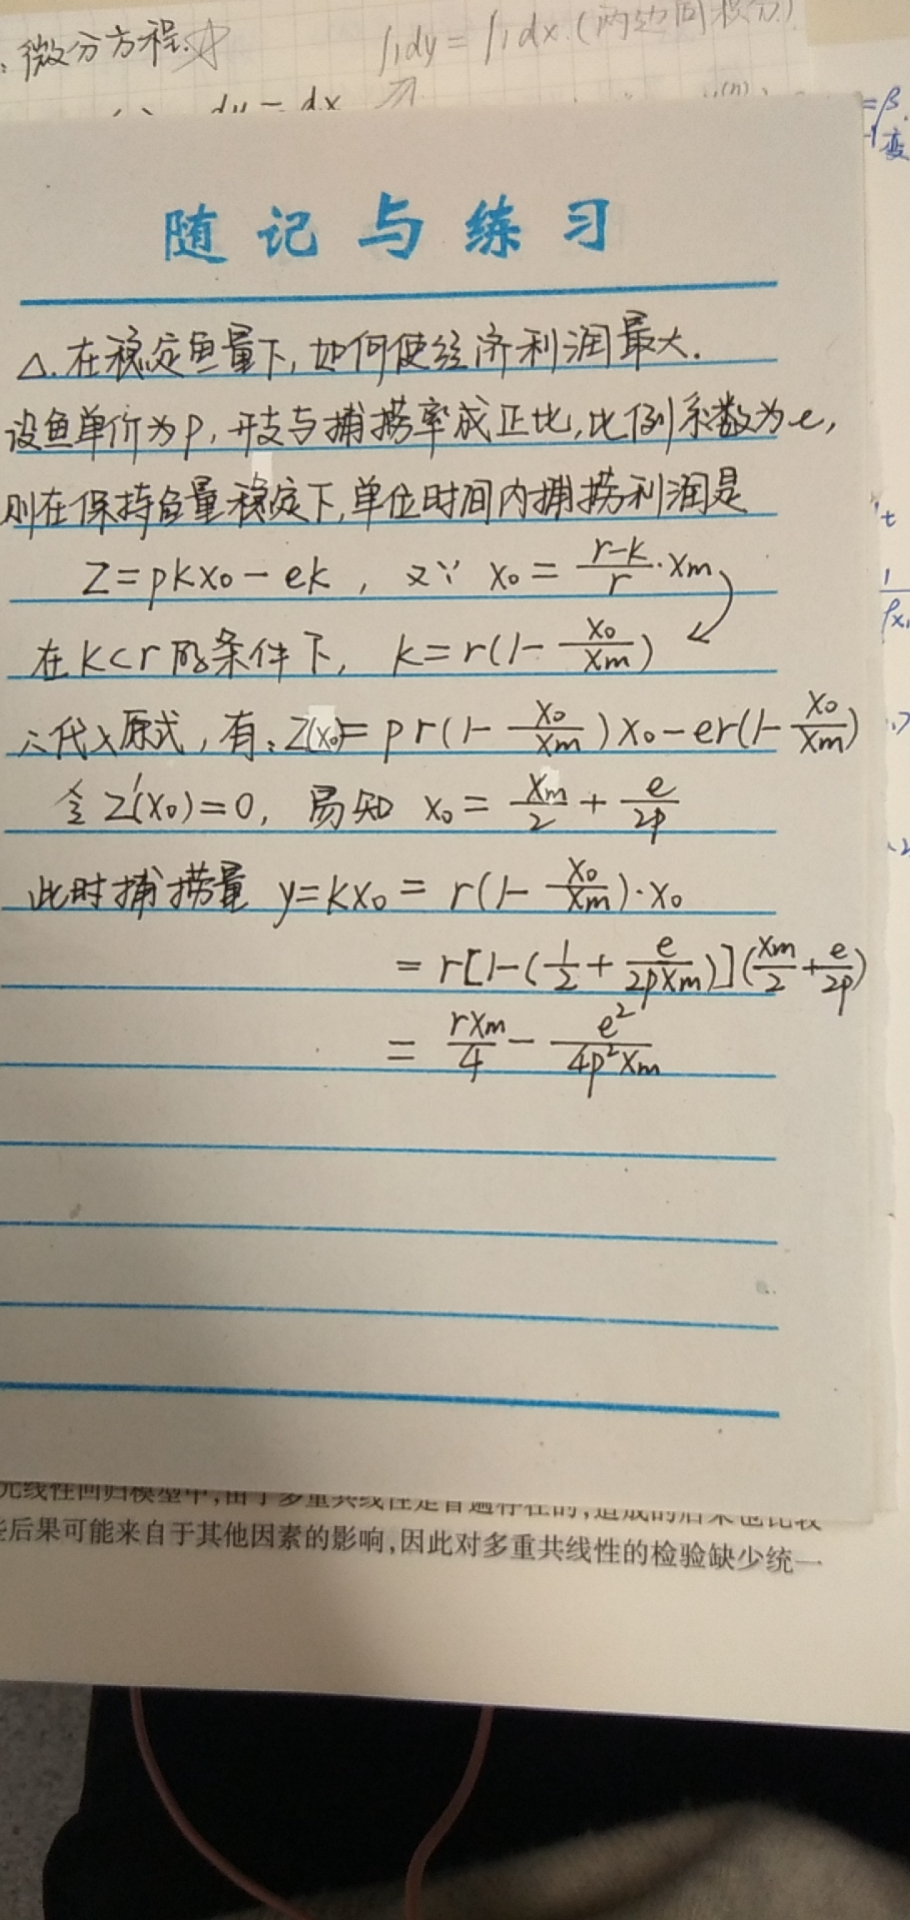 微分方程. ∫1dy = ∫1dx.(两边同积分)
dy = dx
=β.
变
随记与练习
△.在稳定鱼量下,如何使经济利润最大.
设鱼单价为p,开支与捕捞率成正比,比例系数为e,
则在保持鱼量稳定下,单位时间内捕捞利润是
Z=pkx₀-ek, 又∵ x₀ = (r-k)/r·xm
在k<r的条件下, k=r(1-x₀/xm)
∴代入原式,有:Z(x₀)=pr(1-x₀/xm)x₀-er(1-x₀/xm)
令Z'(x₀)=0, 易知 x₀ = xm/2 + e/2p
此时捕捞量 y=kx₀ = r(1-x₀/xm)·x₀
= r[1-(1/2+e/2pxm)](xm/2+e/2p)
= rxm/4 - e²/4p²xm
元线性回归模型中,由于多重共线性是普遍存在的,造成的后果也比较
些后果可能来自于其他因素的影响,因此对多重共线性的检验缺少统一